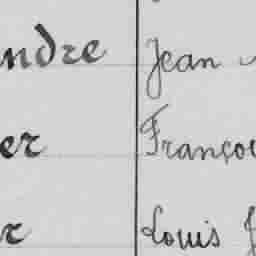 ndre Jean
er Françoi
r Louis J